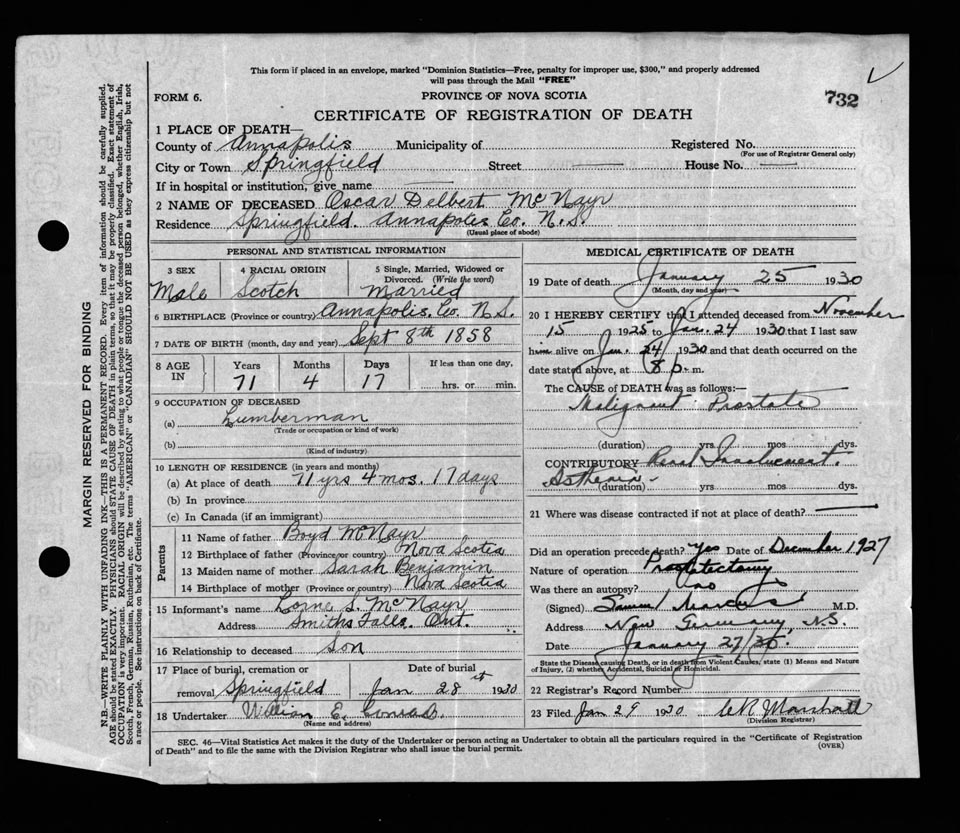 This form if placed in an envelope, marked "Dominion Statistics—Free, penalty for improper use, $300," and properly addressed
will pass through the Mail "FREE"
FORM 6.
PROVINCE OF NOVA SCOTIA
732
CERTIFICATE OF REGISTRATION OF DEATH
1 PLACE OF DEATH—
County of Annapolis Municipality of Registered No.
(For use of Registrar General only)
City or Town Springfield Street House No.
If in hospital or institution, give name
2 NAME OF DECEASED Oscar Delbert McNayr
Residence Springfield. Annapolis Co. N.S.
(Usual place of abode)
PERSONAL AND STATISTICAL INFORMATION
3 SEX 4 RACIAL ORIGIN 5 Single, Married, Widowed or
Divorced. (Write the word)
Male Scotch Married
6 BIRTHPLACE (Province or country) Annapolis, Co. N.S.
7 DATE OF BIRTH (month, day and year) Sept 8th 1858
8 AGE IN Years Months Days If less than one day,
71 4 17 hrs. or min.
9 OCCUPATION OF DECEASED
(a) Lumberman
(Trade or occupation or kind of work)
(b)
(Kind of industry)
10 LENGTH OF RESIDENCE (in years and months)
(a) At place of death 71 yrs 4 mos. 17 days
(b) In province
(c) In Canada (if an immigrant)
Parents
11 Name of father Boyd McNayr
12 Birthplace of father (Province or country) Nova Scotia
13 Maiden name of mother Sarah Benjamin
14 Birthplace of mother (Province or country) Nova Scotia
15 Informant's name Lorne S. McNayr
Address Smiths Falls. Ont.
16 Relationship to deceased Son
17 Place of burial, cremation or Date of burial
removal Springfield Jan 28st 1930
18 Undertaker William E. Conrad.
(Name and address)
MEDICAL CERTIFICATE OF DEATH
19 Date of death January 25 1930
(Month, day and year)
20 I HEREBY CERTIFY that I attended deceased from November
15 1925 to Jan. 24 1930 that I last saw
him alive on Jan. 24/ 1930 and that death occurred on the
date stated above, at 8 p. m.
The CAUSE of DEATH was as follows:—
Malignant Prostate
(duration) yrs mos dys.
CONTRIBUTORY Renal Involvement.
Asthenia -
(duration) yrs mos dys.
21 Where was disease contracted if not at place of death?
Did an operation precede death? Yes Date of December 1927
Nature of operation Prostatectomy
Was there an autopsy? no
(Signed) Samuel Marcus M.D.
Address New Germany, N.S.
Date January 27/30,
State the Disease causing Death, or in death from Violent Causes, state (1) Means and Nature
of Injury, (2) whether Accidental, Suicidal or Homicidal.
22 Registrar's Record Number
23 Filed Jan 29 1930 C R Marshall
(Division Registrar)
SEC. 46—Vital Statistics Act makes it the duty of the Undertaker or person acting as Undertaker to obtain all the particulars required in the "Certificate of Registration
of Death" and to file the same with the Division Registrar who shall issue the burial permit.
(OVER)
MARGIN RESERVED FOR BINDING
N.B.—WRITE PLAINLY WITH UNFADING INK—THIS IS A PERMANENT RECORD. Every item of information should be carefully supplied.
AGE should be stated EXACTLY. PHYSICIANS should STATE CAUSE OF DEATH in plain terms, so that it may be properly classified. Exact statement of
OCCUPATION is very important. RACIAL ORIGIN will be described by stating to what people or tongue the deceased person belonged, whether English, Irish,
Scotch, French, German, Russian, Ruthenian, etc. The terms "AMERICAN" or "CANADIAN" SHOULD NOT BE USED as they express citizenship but not
a race or people. See instructions on back of Certificate.